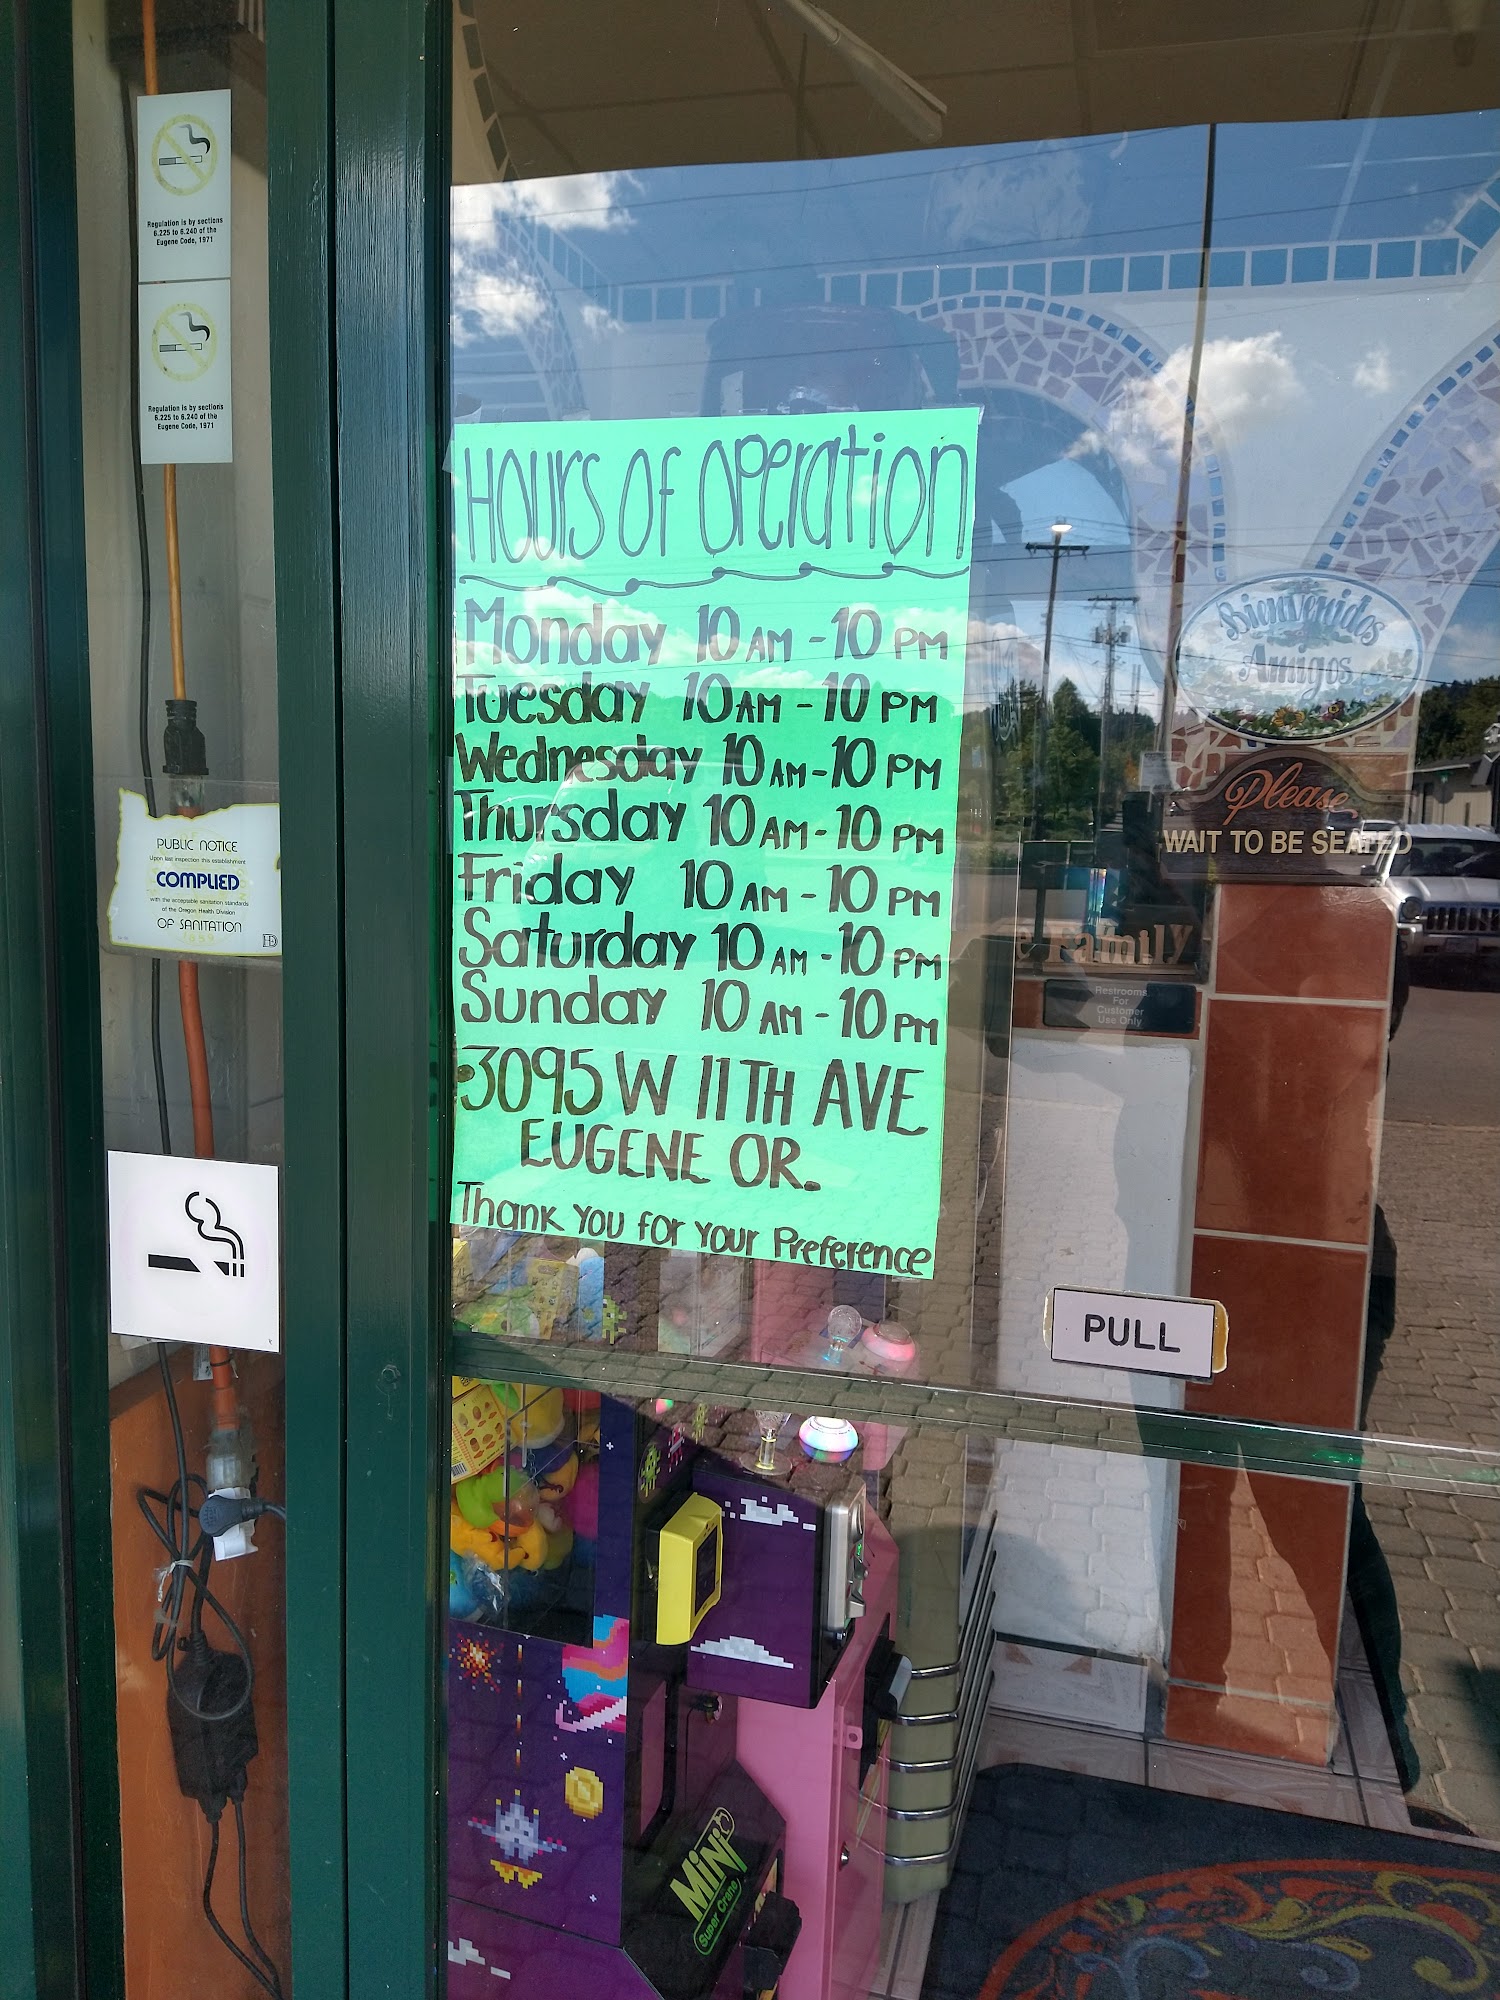 Regulation is by sections
6.225 to 6.240 of the
Eugene Code, 1971
Regulation is by sections
6.225 to 6.240 of the
Eugene Code, 1971
PUBLIC NOTICE
Upon last inspection this establishment
COMPLIED
with the acceptable sanitation standards
of the Oregon Health Division
OF SANITATION
Hours of Operation
Monday 10 AM - 10 PM
Tuesday 10 AM - 10 PM
Wednesday 10 AM - 10 PM
Thursday 10 AM - 10 PM
Friday 10 AM - 10 PM
Saturday 10 AM - 10 PM
Sunday 10 AM - 10 PM
3095 W 11TH AVE
EUGENE OR.
Thank you for your Preference
Bienvenidos
Amigos
Please
WAIT TO BE SEATED
e Family
Restrooms
For
Customer
Use Only
PULL
MINI
Super Crane